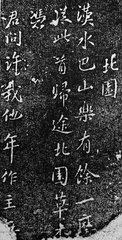 北園
漢水巴山樂有餘一麾
從此首歸途北園草木
憑
君問許我他年作主無